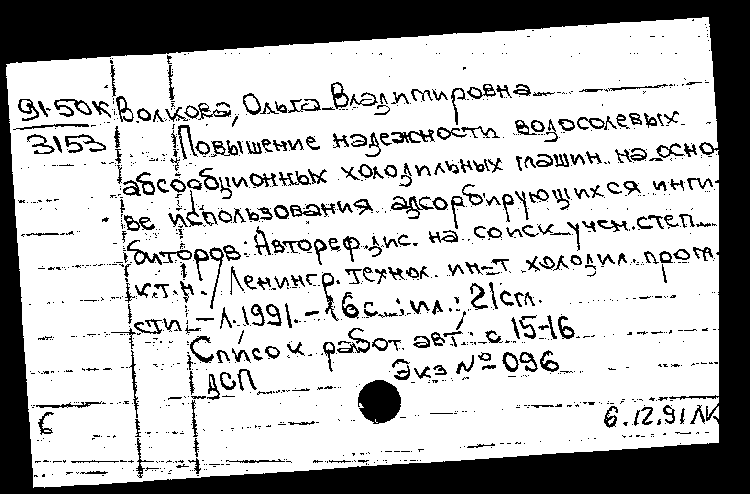 91-50К Волкова, Ольга Владимировна
3153 Повышение надежности водосолевых
абсорбционных холодильных машин на осно-
ве использования адсорбирующихся инги-
биторов: Автореф. дис. на соиск. учен. степ.
к.т.н. / Ленингр. технол. ин-т холодил. пром-
сти. - Л. 1991. - 16 с. : ил. ; 21 см.
Список работ авт.: с 15-16
ДСП Экз № 096
6 6.12.91 ЛК